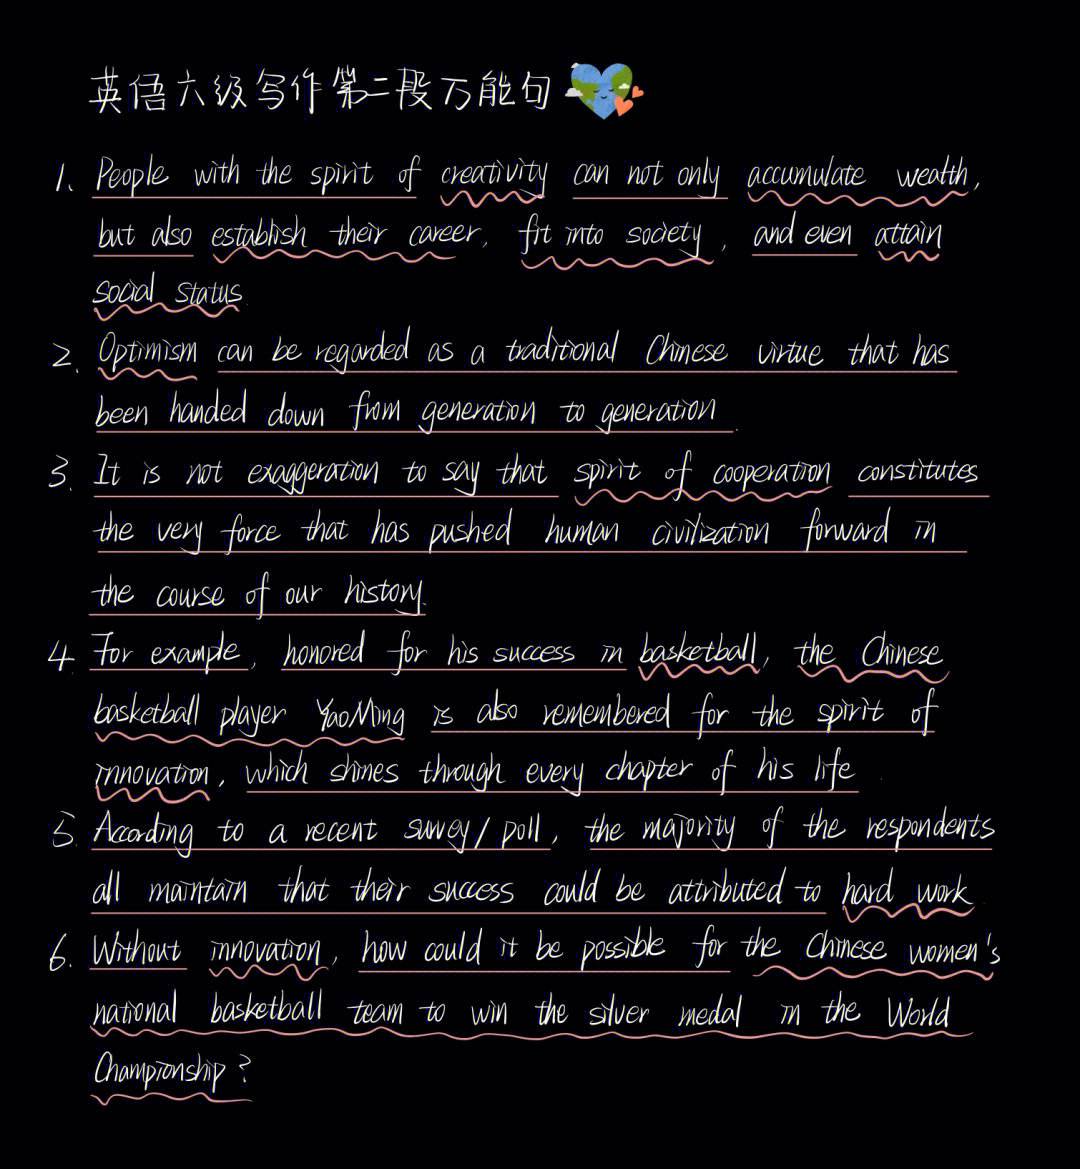 英语六级写作第二段万能句
1. People with the spirit of creativity can not only accumulate wealth,
but also establish their career, fit into society, and even attain
social status.
2. Optimism can be regarded as a traditional Chinese virtue that has
been handed down from generation to generation.
3. It is not exaggeration to say that spirit of cooperation constitutes
the very force that has pushed human civilization forward in
the course of our history.
4. For example, honored for his success in basketball, the Chinese
basketball player YaoMing is also remembered for the spirit of
innovation, which shines through every chapter of his life.
5. According to a recent survey/poll, the majority of the respondents
all maintain that their success could be attributed to hard work.
6. Without innovation, how could it be possible for the Chinese women's
national basketball team to win the silver medal in the World
Championship?